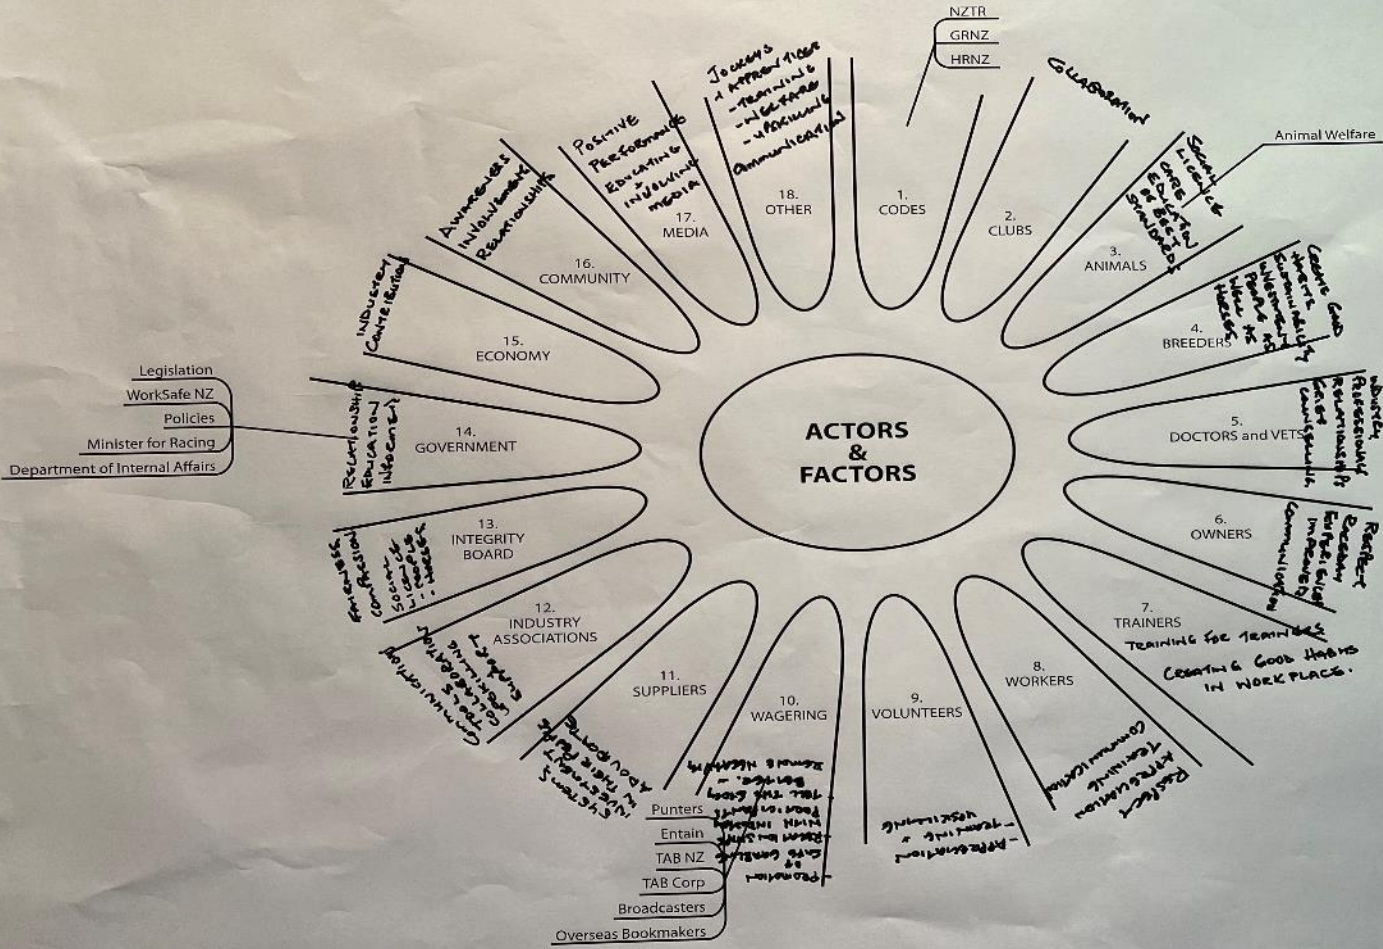 ACTORS
&
FACTORS
1.
CODES
NZTR
GRNZ
HRNZ
2.
CLUBS
COLLABORATION
3.
ANIMALS
SOCIAL
LICENCE
CARE
EDUCATION
OF BEST
STANDARDS
Animal Welfare
4.
BREEDERS
CREATE GOOD
HABITS
SUSTAINABILITY
INVESTMENT
PEOPLE AS
WELL AS
HORSES
5.
DOCTORS and VETS
INDUSTRY
PROFESSIONALS
RELATIONSHIPS
GRIEF
COUNSELLING
6.
OWNERS
RESPECT
RACEDAY
EXPERIENCE
IMPROVED
COMMUNICATION
7.
TRAINERS
TRAINING FOR TRAINERS
CREATING GOOD HABITS
IN WORKPLACE.
8.
WORKERS
RESPECT
APPRECIATION
TRAINING
COMMUNICATION
9.
VOLUNTEERS
- APPRECIATION
- TRAINING +
UPSKILLING
10.
WAGERING
- PROMOTION
OF
SAFE GAMBLING
- RELATIONSHIPS
WITH INDUSTRY
PARTICIPANTS
- TELL THE STORY
BETTER. -
REMOVE NEGATIVITY
Punters
Entain
TAB NZ
TAB Corp
Broadcasters
Overseas Bookmakers
11.
SUPPLIERS
SYSTEMS
INVESTMENT
IN THEIR PEOPLE
ADVOCATE
12.
INDUSTRY
ASSOCIATIONS
COMMUNICATION
TOOLS
COLLABORATION
UPSKILLING
SUPPORT
13.
INTEGRITY
BOARD
FAIRNESS
COMPASSION
SOCIAL
LICENCE
- PEOPLE
- HORSES
14.
GOVERNMENT
RELATIONSHIP
EDUCATION
INFORMED
Legislation
WorkSafe NZ
Policies
Minister for Racing
Department of Internal Affairs
15.
ECONOMY
INDUSTRY
CONTRIBUTION
16.
COMMUNITY
AWARENESS
INVOLVEMENT
RELATIONSHIPS
17.
MEDIA
POSITIVE
PERFORMANCE
EDUCATING
+
INVOLVING
MEDIA
18.
OTHER
JOCKEYS
+ APPRENTICES
- TRAINING
- WELFARE
- UPSKILLING
COMMUNICATION